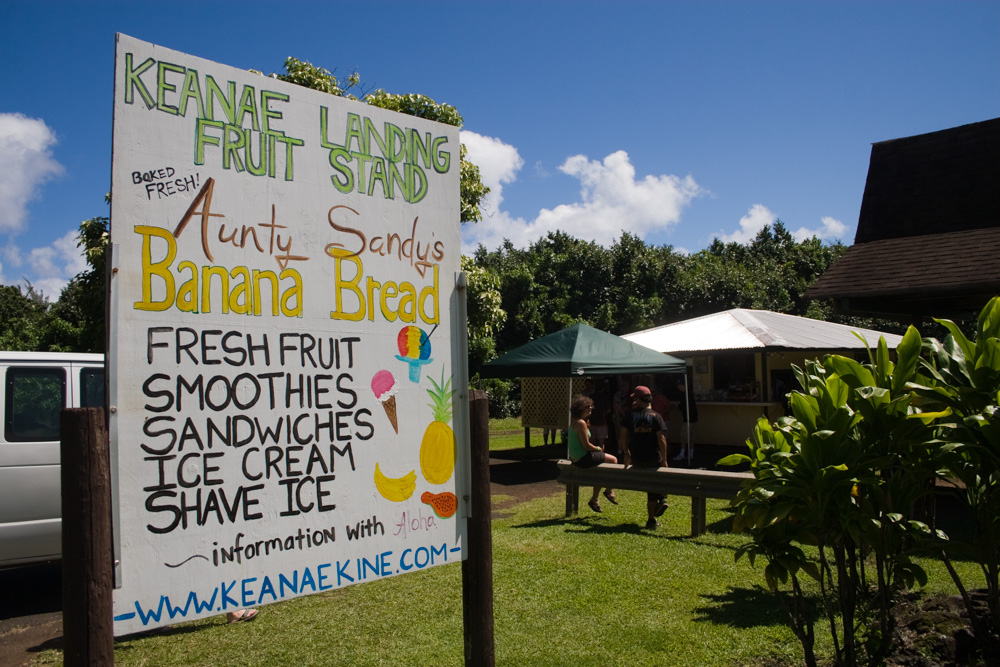 KEANAE LANDING
FRUIT STAND
BAKED
FRESH!
Aunty Sandy's
Banana Bread
FRESH FRUIT
SMOOTHIES
SANDWICHES
ICE CREAM
SHAVE ICE
~information with Aloha
-WWW.KEANAEKINE.COM-